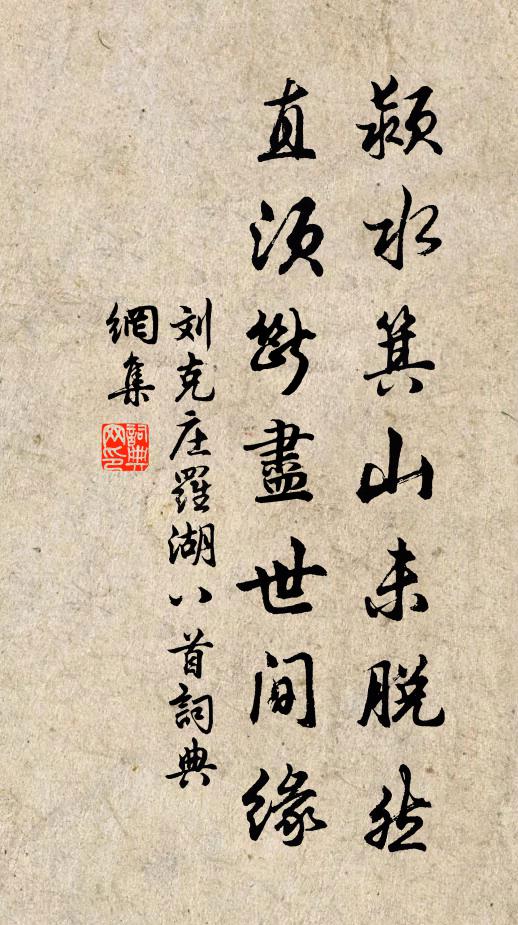 颍水箕山未脱然
直须断盡世间缘
刘克庄羅湖八首詞典
網集
詞典网印